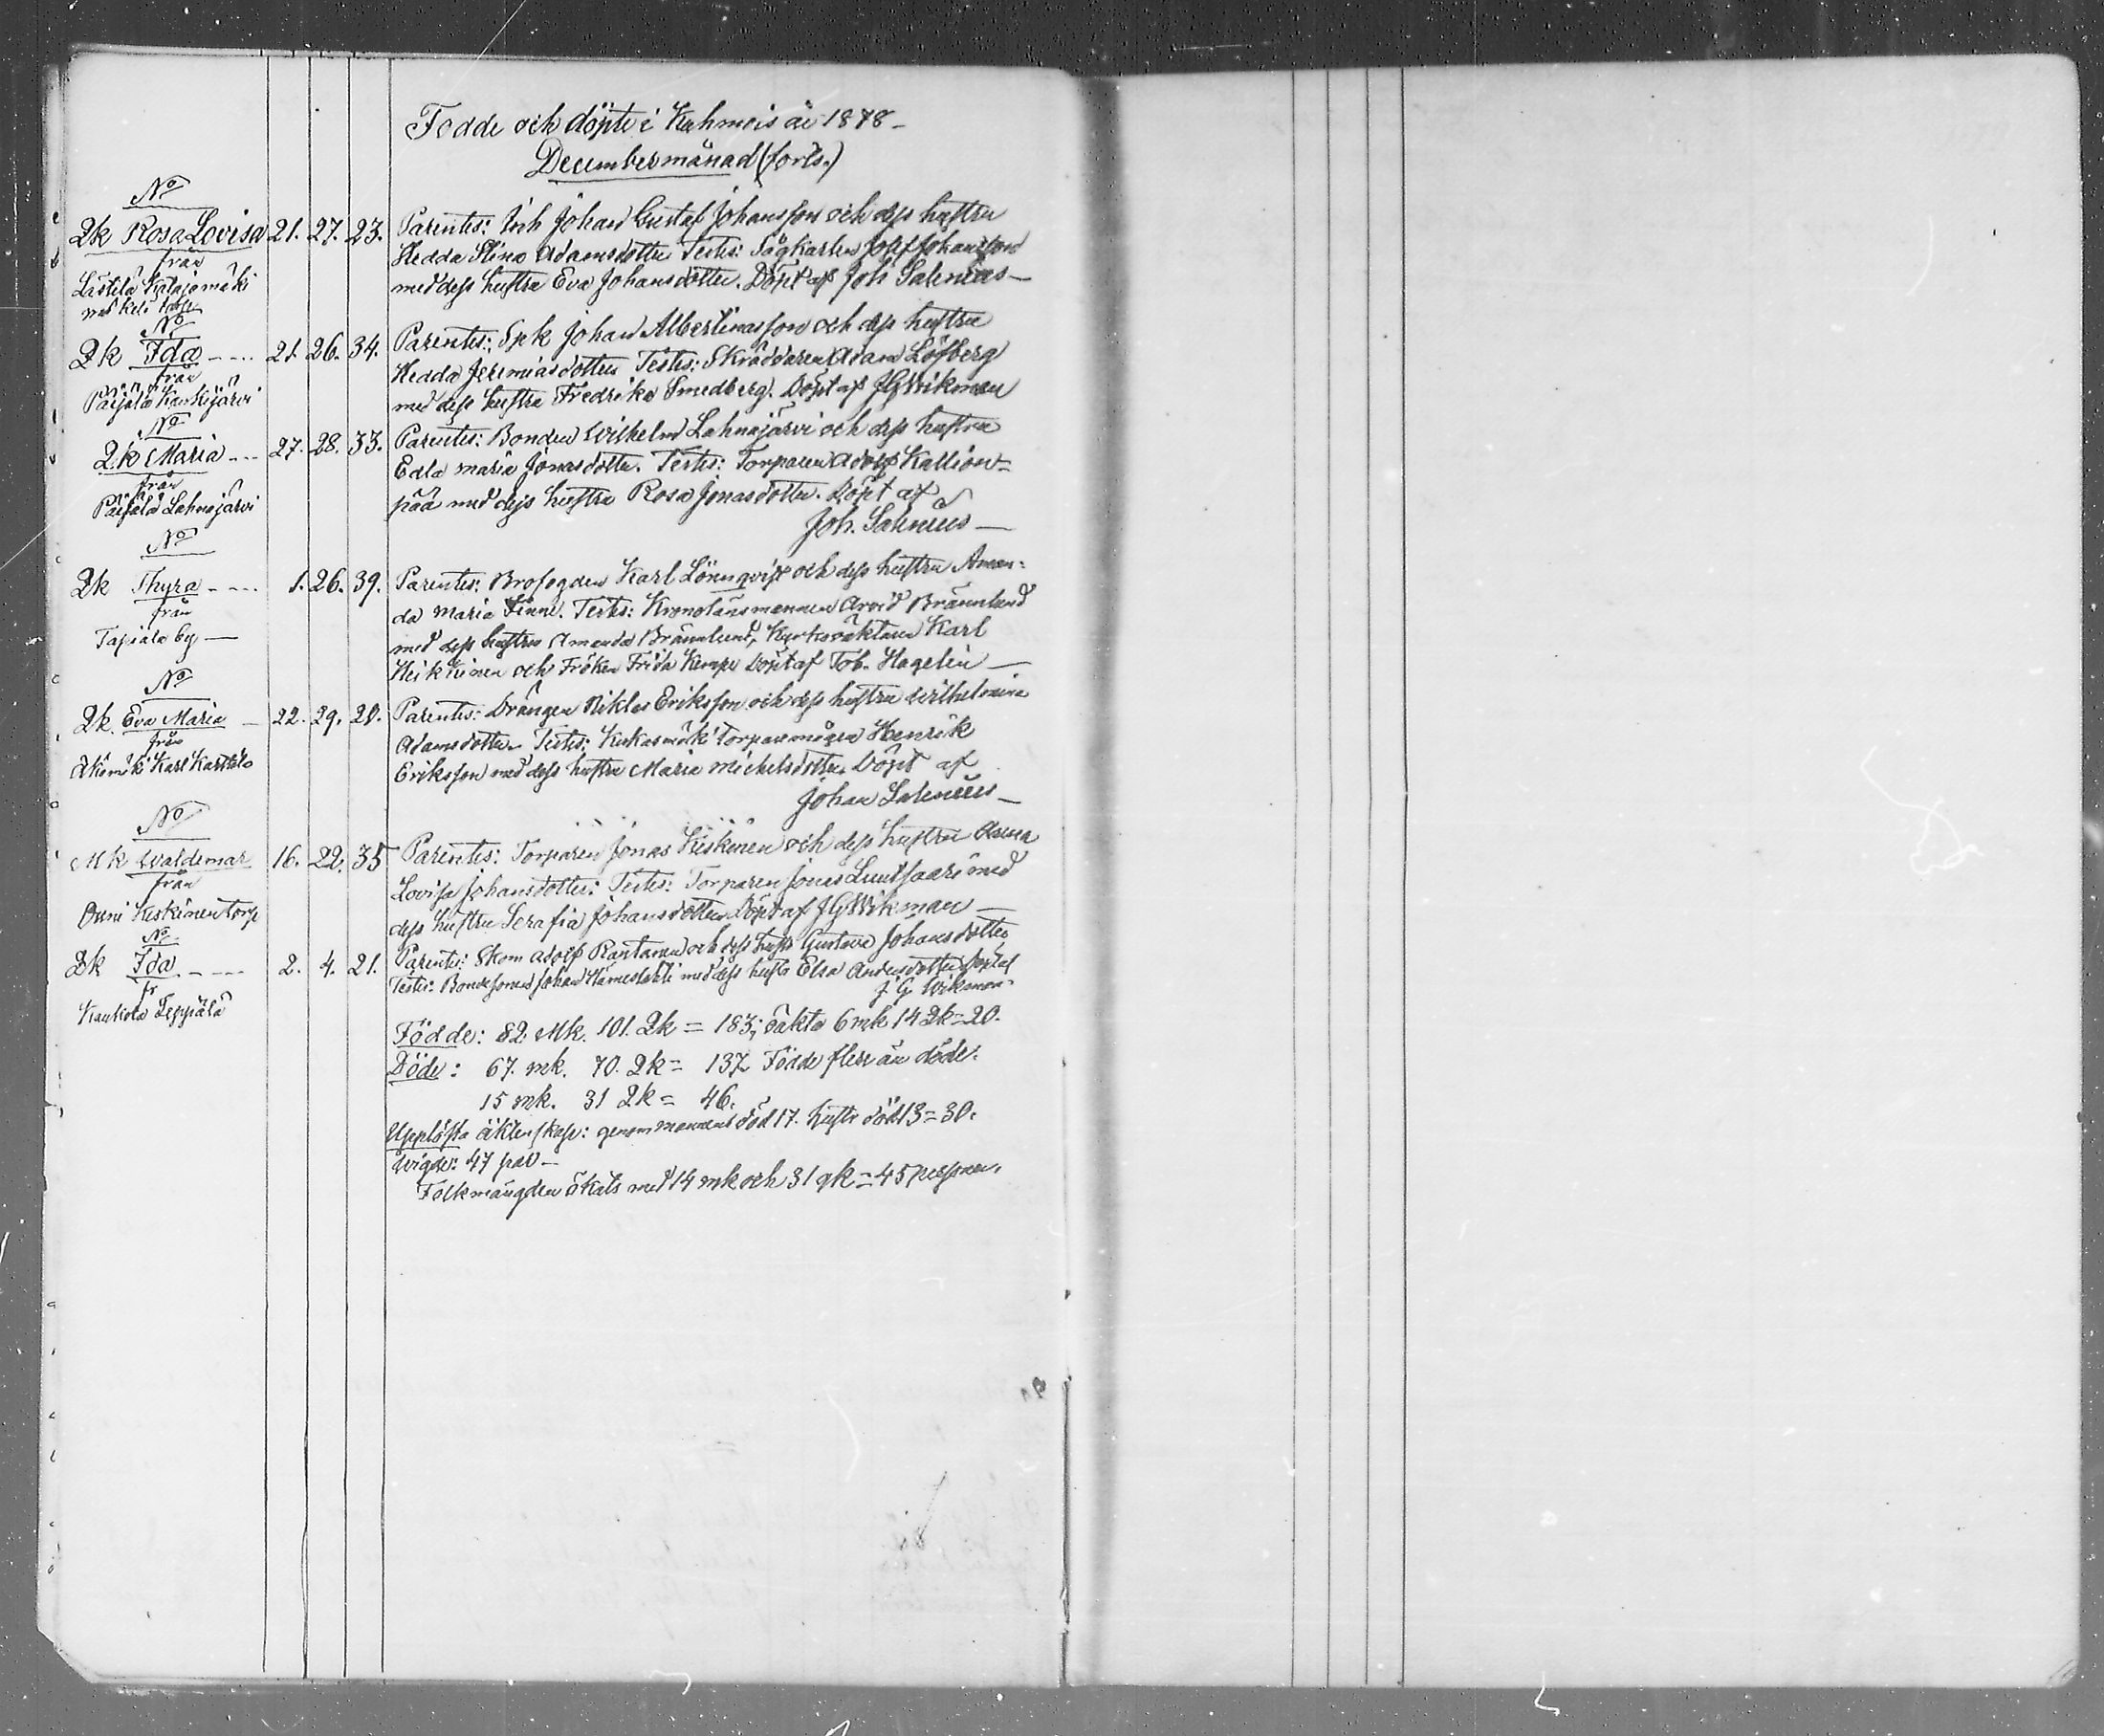 Födde och döpte i Kuhmois år 1878 –
December månad (forts.)
No
Qk Rosa Lovisa 21. 27. 23. Parentes: Inh Johan Gustaf Johansson och dess hustru
från Hedda Stina Adamsdotter Testes: Sågkarlen Josef Johansson
med dess hustru Eva Johansdotter. Döpt af Joh Salenius –
No
Qk Ida – – 21. 26. 34. Parentes: Spk Johan Albertinasson och dess hustru
från Hedda Jeremiasdotter Testes: Skräddaren Adam Löfberg
Päijälä Kankijärvi med dess hustru Fredrika Smedberg. Döpt af JGWikman
No
Qk Maria – – 27. 28. 33. Parentes: Bonden Wilhelm Lahnajärvi och dess hustru
från Edla Maria Jonasdotter. Testes: Torparen Adolf Kallion=
Päijälä Lahnajärvi pää med dess hustru Rosa Jonasdotter. Döpt af
Joh. Salenius –
No
Qk Thyra – – – 1. 26. 39. Parentes: Brofogden Karl Lönnqvist och dess hustru Aman=
från da Maria Finne. Testes: Kronolänsmannen Arvid Brännlund
Tapiala by – med dess hustru Amanda Brännlund, Kyrkovaktaren Karl
Heikkinen och Fröken Frida Kempe Döpt af Tob. Hagelin –
No
Qk. Eva Maria – 22. 29. 20. Parentes: Drängen Niklas Eriksson och dess hustru Wilhelmina
från Adamsdotter. Testes: Torparemågen Henrik
Karl Karttila Eriksson med dess hustru Maria Michelsdotter Döpt af
Johan Salenius –
No
Mk Waldemar 16. 22. 35 Parentes: Torparen Jonas Keskinen och dess hustru Anna
från Lovisa Johansdotter: Testes: Torparen Jonas Luutsaari med
Keskinen torp dess hustru Serafia Johansdotter Döpt af JGWikman –
No
Qk Ida – – – 2. 4. 21. Parentes: Skom Adolf Rantanen och dess hustr Gustava Johansdotter
fr Testes: Bondesonen Johan med dess hustr Elsa Andersdotter Döpt af
Kankola Seppälä J G Wikman.
Födde: 82 Mk. 101. Qk = 183; oäkta 6 mk 14 Qk = 20.
Döde: 67. mk. 70. Qk = 137 Födde flere än döde.
15 mk. 31 Qk = 46.
Upplösta äktenskap: genom mannens död 17. hustr död 13 = 30.
Wigde: 47 par –
Folkmängden ökats med 14 mk och 31 qk = 45 personer.